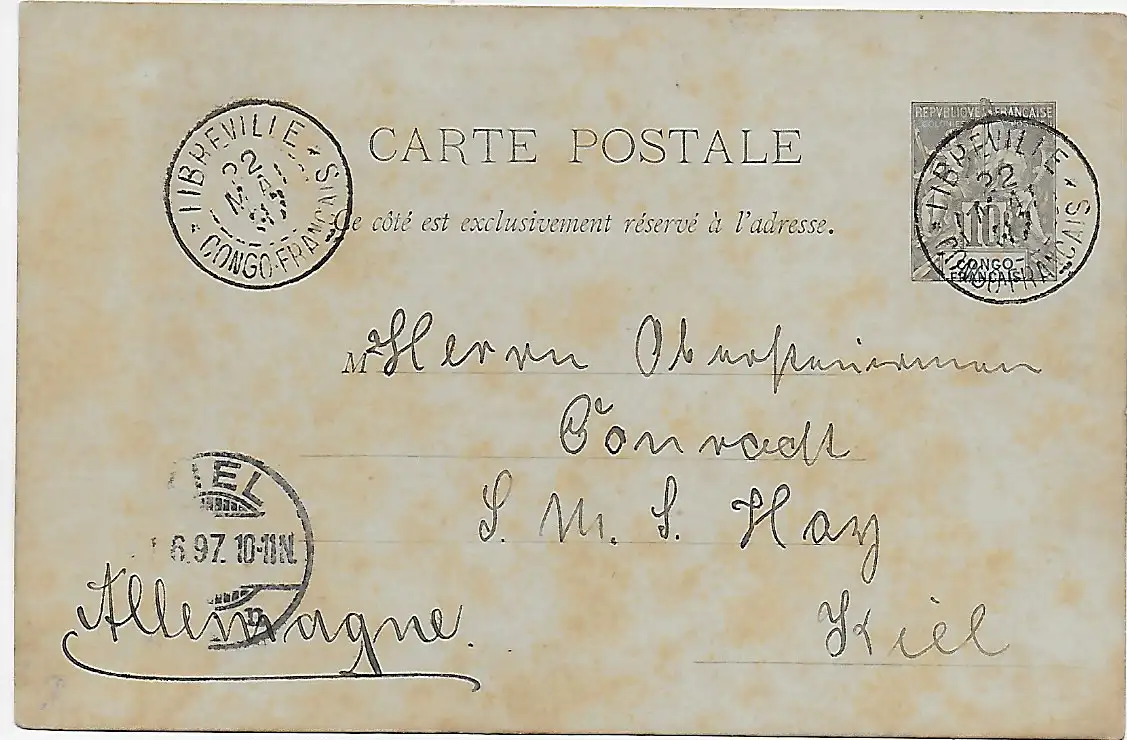 CARTE POSTALE
Ce côté est exclusivement réservé à l'adresse.
LIBREVILLE
22
MAI
97
CONGO-FRANÇAIS
REPUBLIQUE FRANÇAISE
COLONIES
10
CONGO-
FRANÇAIS
LIBREVILLE
22
MAI
CONGO-FRANÇAIS
M Herrn Obersteuermann
Conradt
S. M. S. Hay
Kiel
Allemagne.
KIEL
6.97. 10-11N.